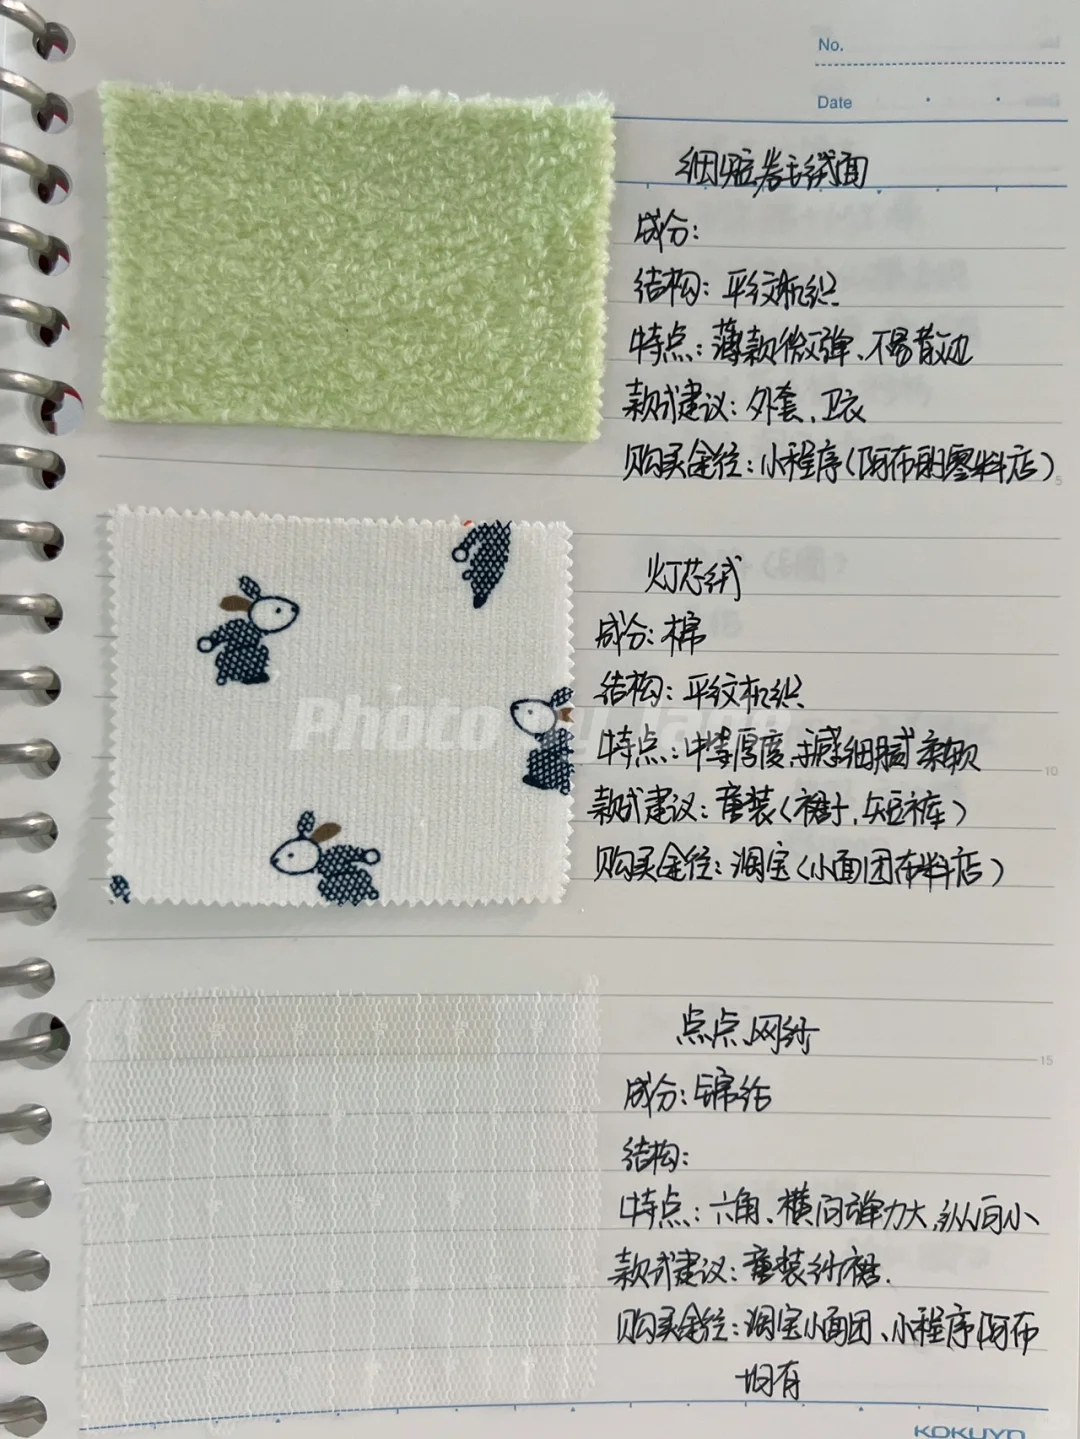 No.
Date
细腻卷毛绒面
成分:
结构: 平纹机织
特点: 薄款微弹、不易散边
款式建议: 外套、卫衣
购买途径: 小程序(阿布的零料店)
5
灯芯绒
成分: 棉
结构: 平纹机织
特点: 中等厚度、手感细腻柔软
款式建议: 童装(裙子、短裤)
购买途径: 淘宝(小面团布料店)
10
点点网纱
成分: 锦纶
15
结构:
特点: 六角、横向弹力大、纵向小
款式建议: 童装纱裙.
购买途径: 淘宝小面团、小程序阿布
均有
KOKUYO